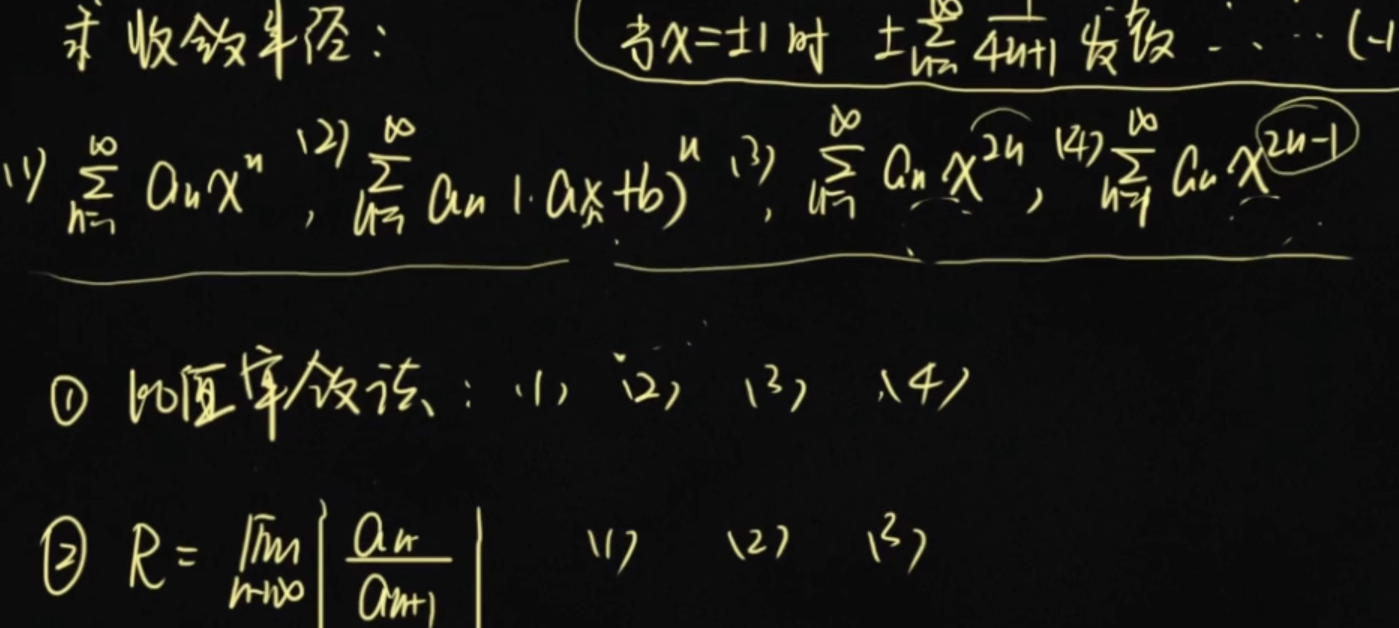 求收敛半径: 当x=±1时 ±∑_{n=1}^{∞} 1/(4n+1) 发散 ..... (-1
(1) ∑_{n=1}^{∞} aₙxⁿ, (2) ∑_{n=1}^{∞} aₙ(ax+b)ⁿ, (3) ∑_{n=1}^{∞} aₙx^{2n}, (4) ∑_{n=1}^{∞} aₙx^{2n-1}
① 比值审敛法: (1) (2) (3) (4)
② R = lim_{n→∞} |aₙ/aₙ₊₁| (1) (2) (3)